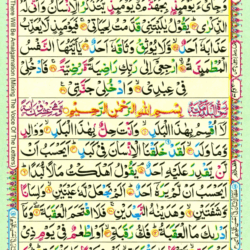 وَجِایْٓءَ یَوْمَىِٕذٍۭ بِجَهَنَّمَ یَوْمَىِٕذٍ یَّتَذَكَّرُ الْاِنْسَانُ وَاَنّٰى لَهُ
الذِّكْرٰى یَقُوْلُ یٰلَیْتَنِیْ قَدَّمْتُ لِحَیَاتِیْ فَیَوْمَىِٕذٍ لَّا یُعَذِّبُ
عَذَابَهٗۤ اَحَدٌ وَّلَا یُوْثِقُ وَثَاقَهٗۤ اَحَدٌ یٰۤاَیَّتُهَا النَّفْسُ
الْمُطْمَىِٕنَّةُ ارْجِعِیْۤ اِلٰى رَبِّكِ رَاضِیَةً مَّرْضِیَّةً فَادْخُلِیْ
فِیْ عِبٰدِیْ وَادْخُلِیْ جَنَّتِیْ
بِسْمِ اللهِ الرَّحْمٰنِ الرَّحِیْمِ
لَاۤ اُقْسِمُ بِهٰذَا الْبَلَدِ وَاَنْتَ حِلٌّۢ بِهٰذَا الْبَلَدِ وَوَالِدٍ
وَّمَا وَلَدَ لَقَدْ خَلَقْنَا الْاِنْسَانَ فِیْ كَبَدٍ اَیَحْسَبُ اَنْ
لَّنْ یَّقْدِرَ عَلَیْهِ اَحَدٌ یَقُوْلُ اَهْلَكْتُ مَالًا لُّبَدًا
اَیَحْسَبُ اَنْ لَّمْ یَرَهٗۤ اَحَدٌ اَلَمْ نَجْعَلْ لَّهٗ عَیْنَیْنِ وَلِسَانًا
وَّشَفَتَیْنِ وَهَدَیْنٰهُ النَّجْدَیْنِ فَلَا اقْتَحَمَ الْعَقَبَةَ وَمَاۤ
اَدْرٰىكَ مَا الْعَقَبَةُ فَكُّ رَقَبَةٍ اَوْ اِطْعٰمٌ فِیْ یَوْمٍ ذِیْ